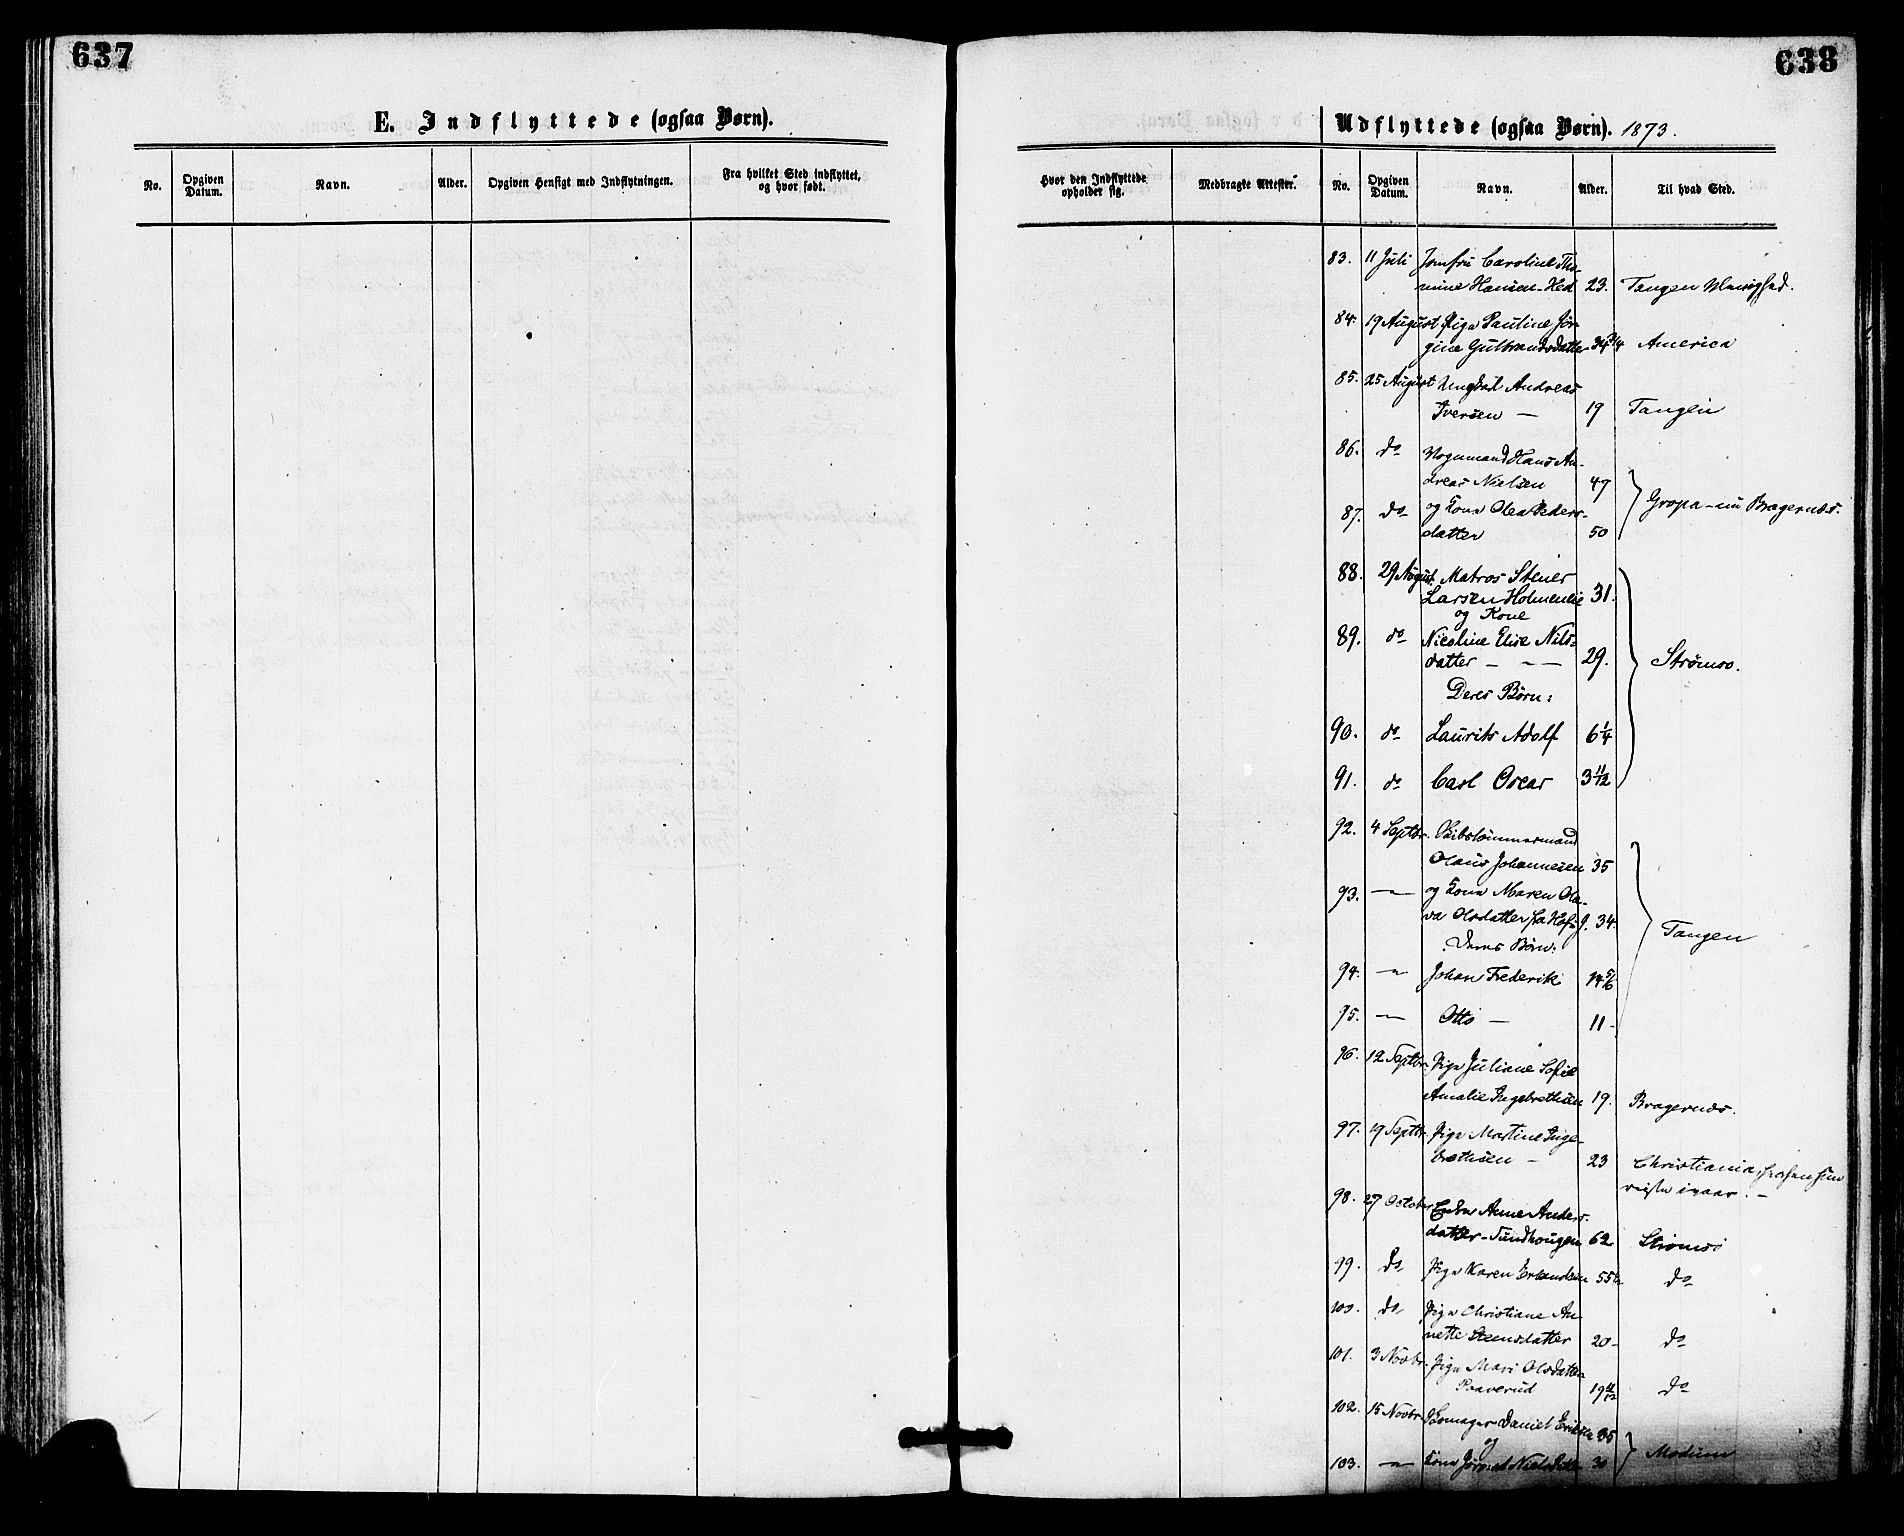 637
E. Indflyttede (ogsaa Børn).
No. Opgiven Datum. Navn. Alder. Opgiven Hensigt med Indflytningen. Fra hvilket Sted indflyttet, og hvor født.
638
Udflyttede (ogsaa Børn). 1873.
Hvor den Indflyttede opholder sig. Medbragte Attester. No. Opgiven Datum. Navn. Alder. Til hvad Sted.
83. 11 Juli Jomfru Caroline Tho-
mine Hansen-Hed 23. Tangen
84. 19 August Pige Pauline Jør-
gine Gulbrandsdatter America
85. 25 August Ungkarl Andreas
Iversen — 19 Tangen
86. do Vognmand Hans An-
dreas Nielsen 47
Gropa - nu Bragernæs.
87. do og Kone Olea Peders-
datter 50
88. 29 August. Matros Stener
Larsen Holmenlie 31.
og Kone
89. do Nicoline Elise Nils-
datter — — 29.
Strømsø.
Deres Børn:
90. do Laurits Adolf 6 1/4
91. do Carl Oscar 3 11/12
92. 4 Septbr. Skibstømmermand
Olaus Johannesen 35
93. — og Kone Maren Ola-
va Olsdatter 34.
Tangen
Deres Børn:
94. — Johan Frederik 14 5/6
95. — Otto — 11 -
96. 12 Septbr. Pige Juliane Sofie
Amalie Ingebrethsen 19. Bragernæs.
97. 19 Septbr. Pige Martine Inge-
brethsen — 23 Christiania,
reiste ivaar. —
98. 27 October Enke Anne Anders-
datter-Sundhougen 62 Strømsø
99. do Pige Karen Erlandsen 55 do
100. do Pige Christiane An-
nette Steensdatter 20 - do
101. 3 Novbr. Pige Mari Olsdatter
Praverud 19 11/12 do
102. 15 Novbr. Skomager Daniel Eriksen 35
og
Modum
103. — Kone Nielsdatter 30